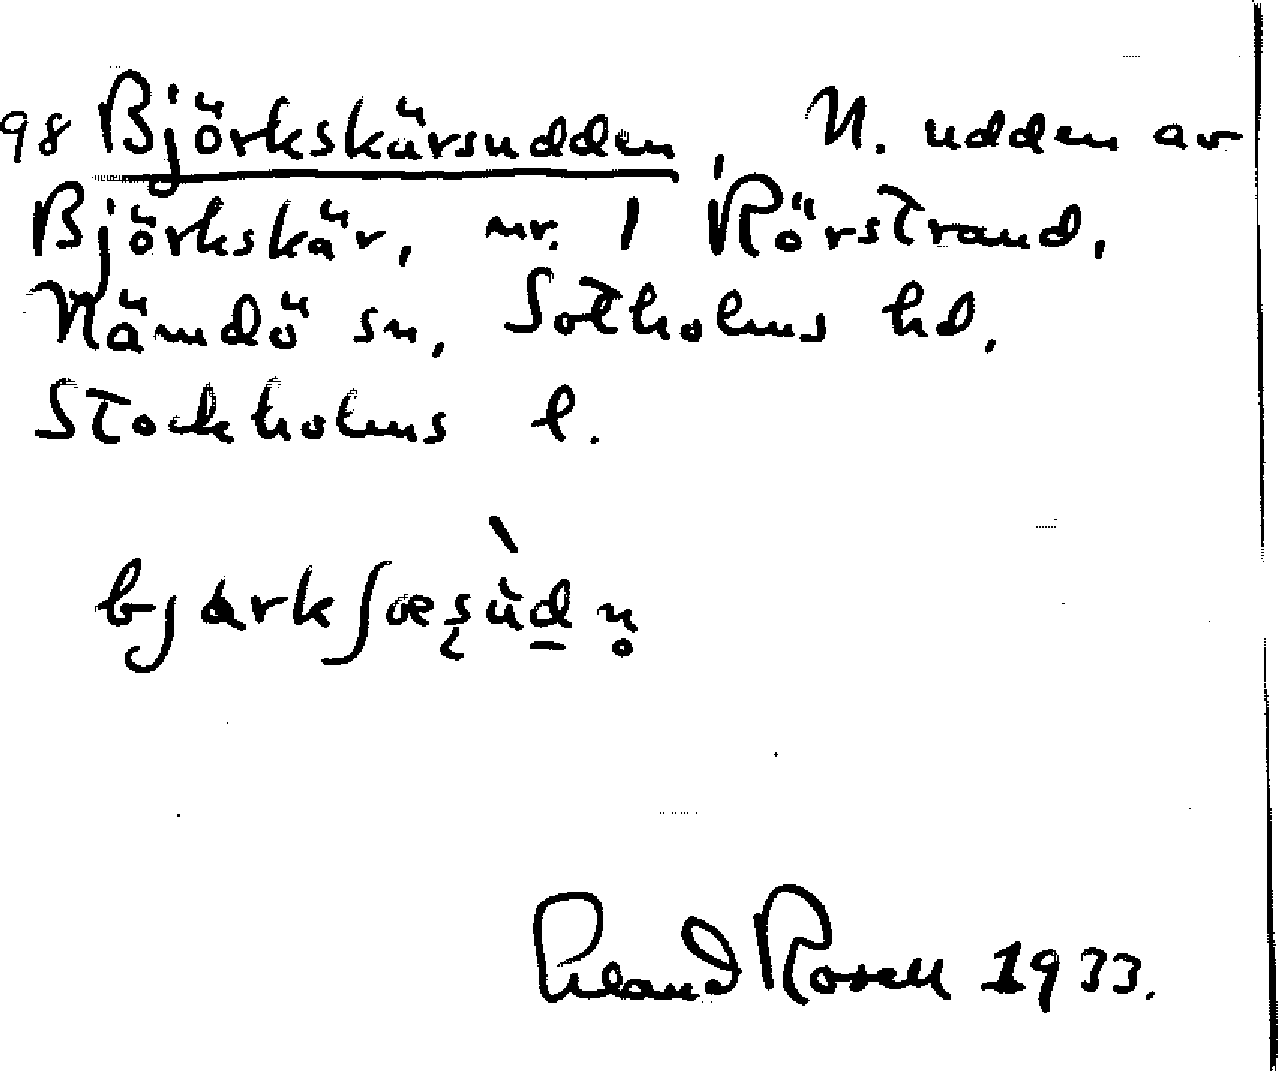 98 Björkskärsudden, N. udden av
Björkskär, nr. 1 Rörstrand,
Nämdö sn, Sotholms hd,
Stockholms l.
bjɑrkʃæșùd̲n̥
Erland Rosell 1933.